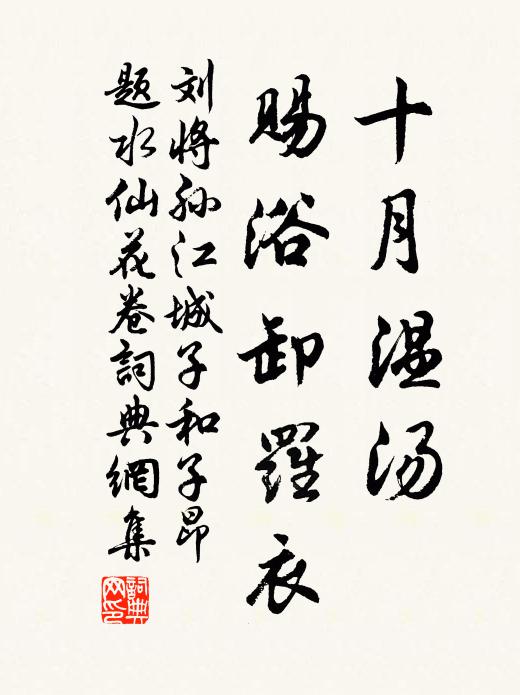 十月温汤
赐浴卸羅衣
刘将孙江城子和子昂
题水仙花卷詞典網集
詞典網印